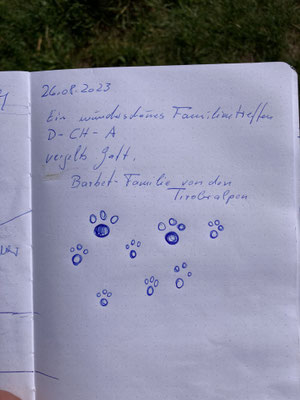 26.08.2023
Ein wunderschönes Familientreffen
D-CH-A
vergelts Gott.
Barbet-Familie von den
Tiroleralpen